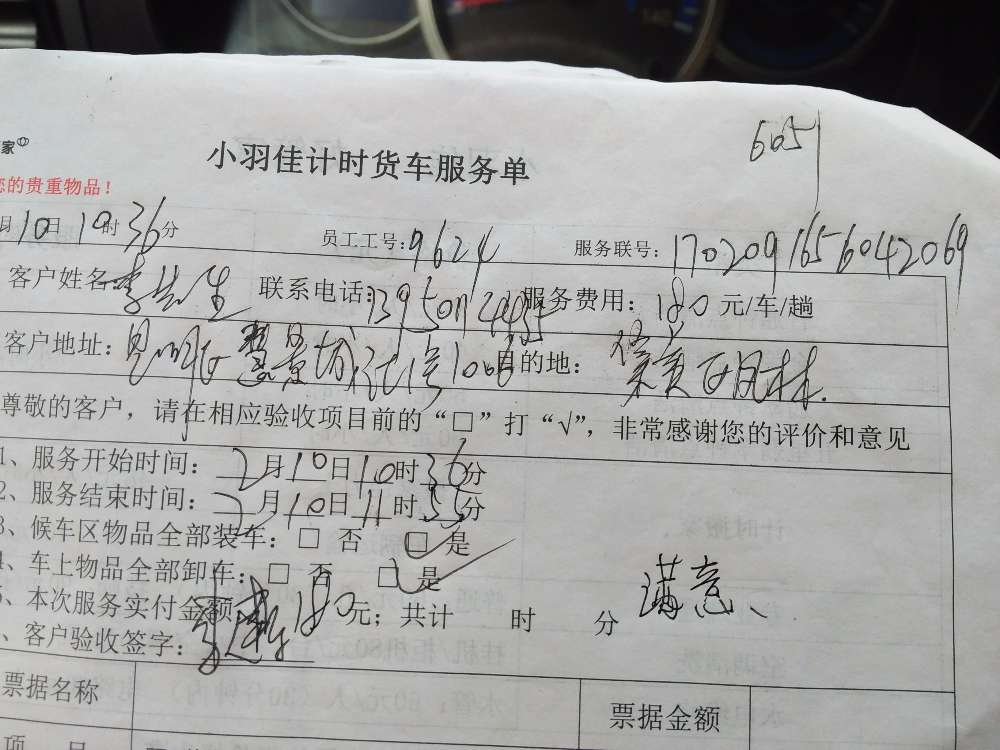 6051
家
小羽佳计时货车服务单
您的贵重物品！
月10日10时36分 员工工号：9624 服务联号：1702091656042069
客户姓名：李先生 联系电话： 服务费用：180元/车/趟
客户地址： 目的地：
尊敬的客户，请在相应验收项目前的“□”打“√”，非常感谢您的评价和意见
1、服务开始时间：2月10日10时36分
2、服务结束时间：2月10日11时55分
3、候车区物品全部装车：□ 否 □ 是
4、车上物品全部卸车：□ 否 □ 是
5、本次服务实付金额180元；共计 时 分 满意、
、客户验收签字：
票据名称 票据金额
项 目